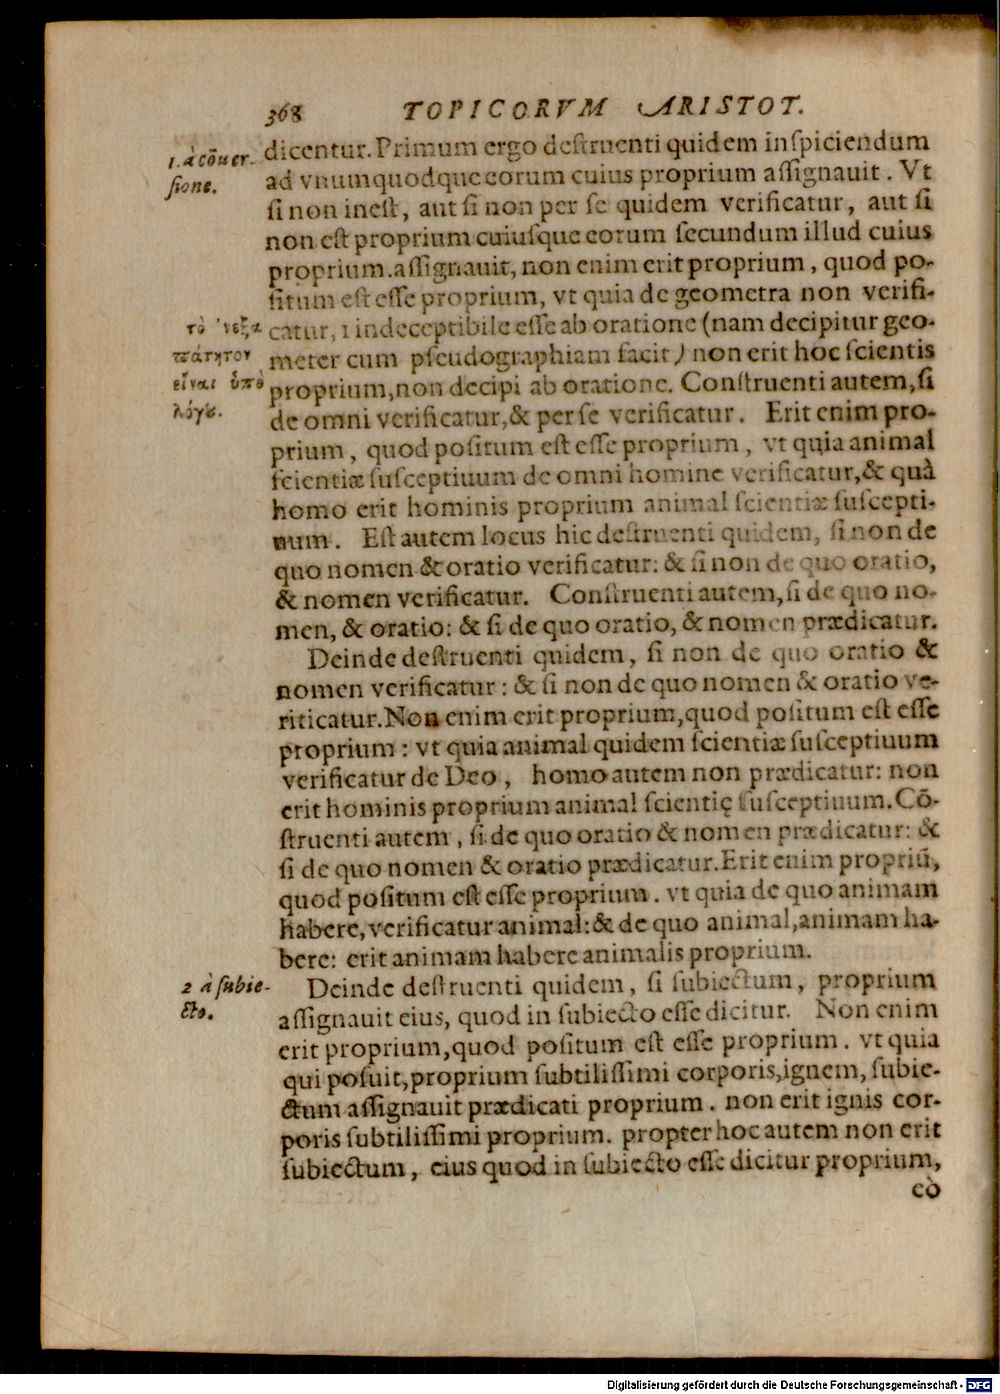 368 TOPICORVM ARISTOT.
1. à cōuer-
sione.
dicentur. Primum ergo destruenti quidem inspiciendum
ad vnumquodque eorum cuius proprium assignauit. Vt
si non inest, aut si non per se quidem verificatur, aut si
non est proprium cuiusque eorum secundum illud cuius
proprium assignauit, non enim erit proprium, quod po-
situm est esse proprium, vt quia de geometra non verifi-
τὸ ἀνεξα
πάτητον
εἶναι ὑπὸ
λόγȣ.
catur, 1 indeceptibile esse ab oratione (nam decipitur geo-
meter cum pseudographiam facit) non erit hoc scientis
proprium, non decipi ab oratione. Construenti autem, si
de omni verificatur, & per se verificatur. Erit enim pro-
prium, quod positum est esse proprium, vt quia animal
scientiæ susceptiuum de omni homine verificatur, & quà
homo erit hominis proprium animal scientiæ suscepti-
uum. Est autem locus hic destruenti quidem, si non de
quo nomen & oratio verificatur: & si non de quo oratio,
& nomen verificatur. Construenti autem, si de quo no-
men, & oratio: & si de quo oratio, & nomen prædicatur.
Deinde destruenti quidem, si non de quo oratio &
nomen verificatur: & si non de quo nomen & oratio ve-
riticatur. Non enim erit proprium, quod positum est esse
proprium: vt quia animal quidem scientiæ susceptiuum
verificatur de Deo, homo autem non prædicatur: non
erit hominis proprium animal scientię susceptiuum. Cō-
struenti autem, si de quo oratio & nomen prædicatur: &
si de quo nomen & oratio prædicatur. Erit enim propriū,
quod positum est esse proprium. vt quia de quo animam
habere, verificatur animal: & de quo animal, animam ha-
bere: erit animam habere animalis proprium.
2 à subie-
cto.
Deinde destruenti quidem, si subiectum, proprium
assignauit eius, quod in subiecto esse dicitur. Non enim
erit proprium, quod positum est esse proprium. vt quia
qui posuit, proprium subtilissimi corporis, ignem, subie-
ctum assignauit prædicati proprium. non erit ignis cor-
poris subtilissimi proprium. propter hoc autem non erit
subiectum, eius quod in subiecto esse dicitur proprium,
eò
Digitalisierung gefördert durch die Deutsche Forschungsgemeinschaft - DFG